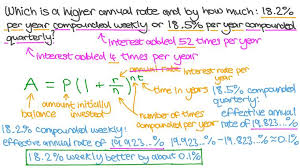 Which is a higher annual rate and by how much: 18.2%
per year compounded weekly or 18.5% per year compounded
quarterly?
interest added 52 times per year
interest added 4 times per year
annual rate
interest rate per year
A = P(1 + r/n)^nt
time in years
amount/balance
initially invested
number of times compounded per year
18.5% compounded quarterly:
effective annual rate of 19.823...%
18.2% compounded weekly:
effective annual rate of 19.923...%
19.923...% - 19.823...% ≈ 0.1%
18.2% weekly better by about 0.1%